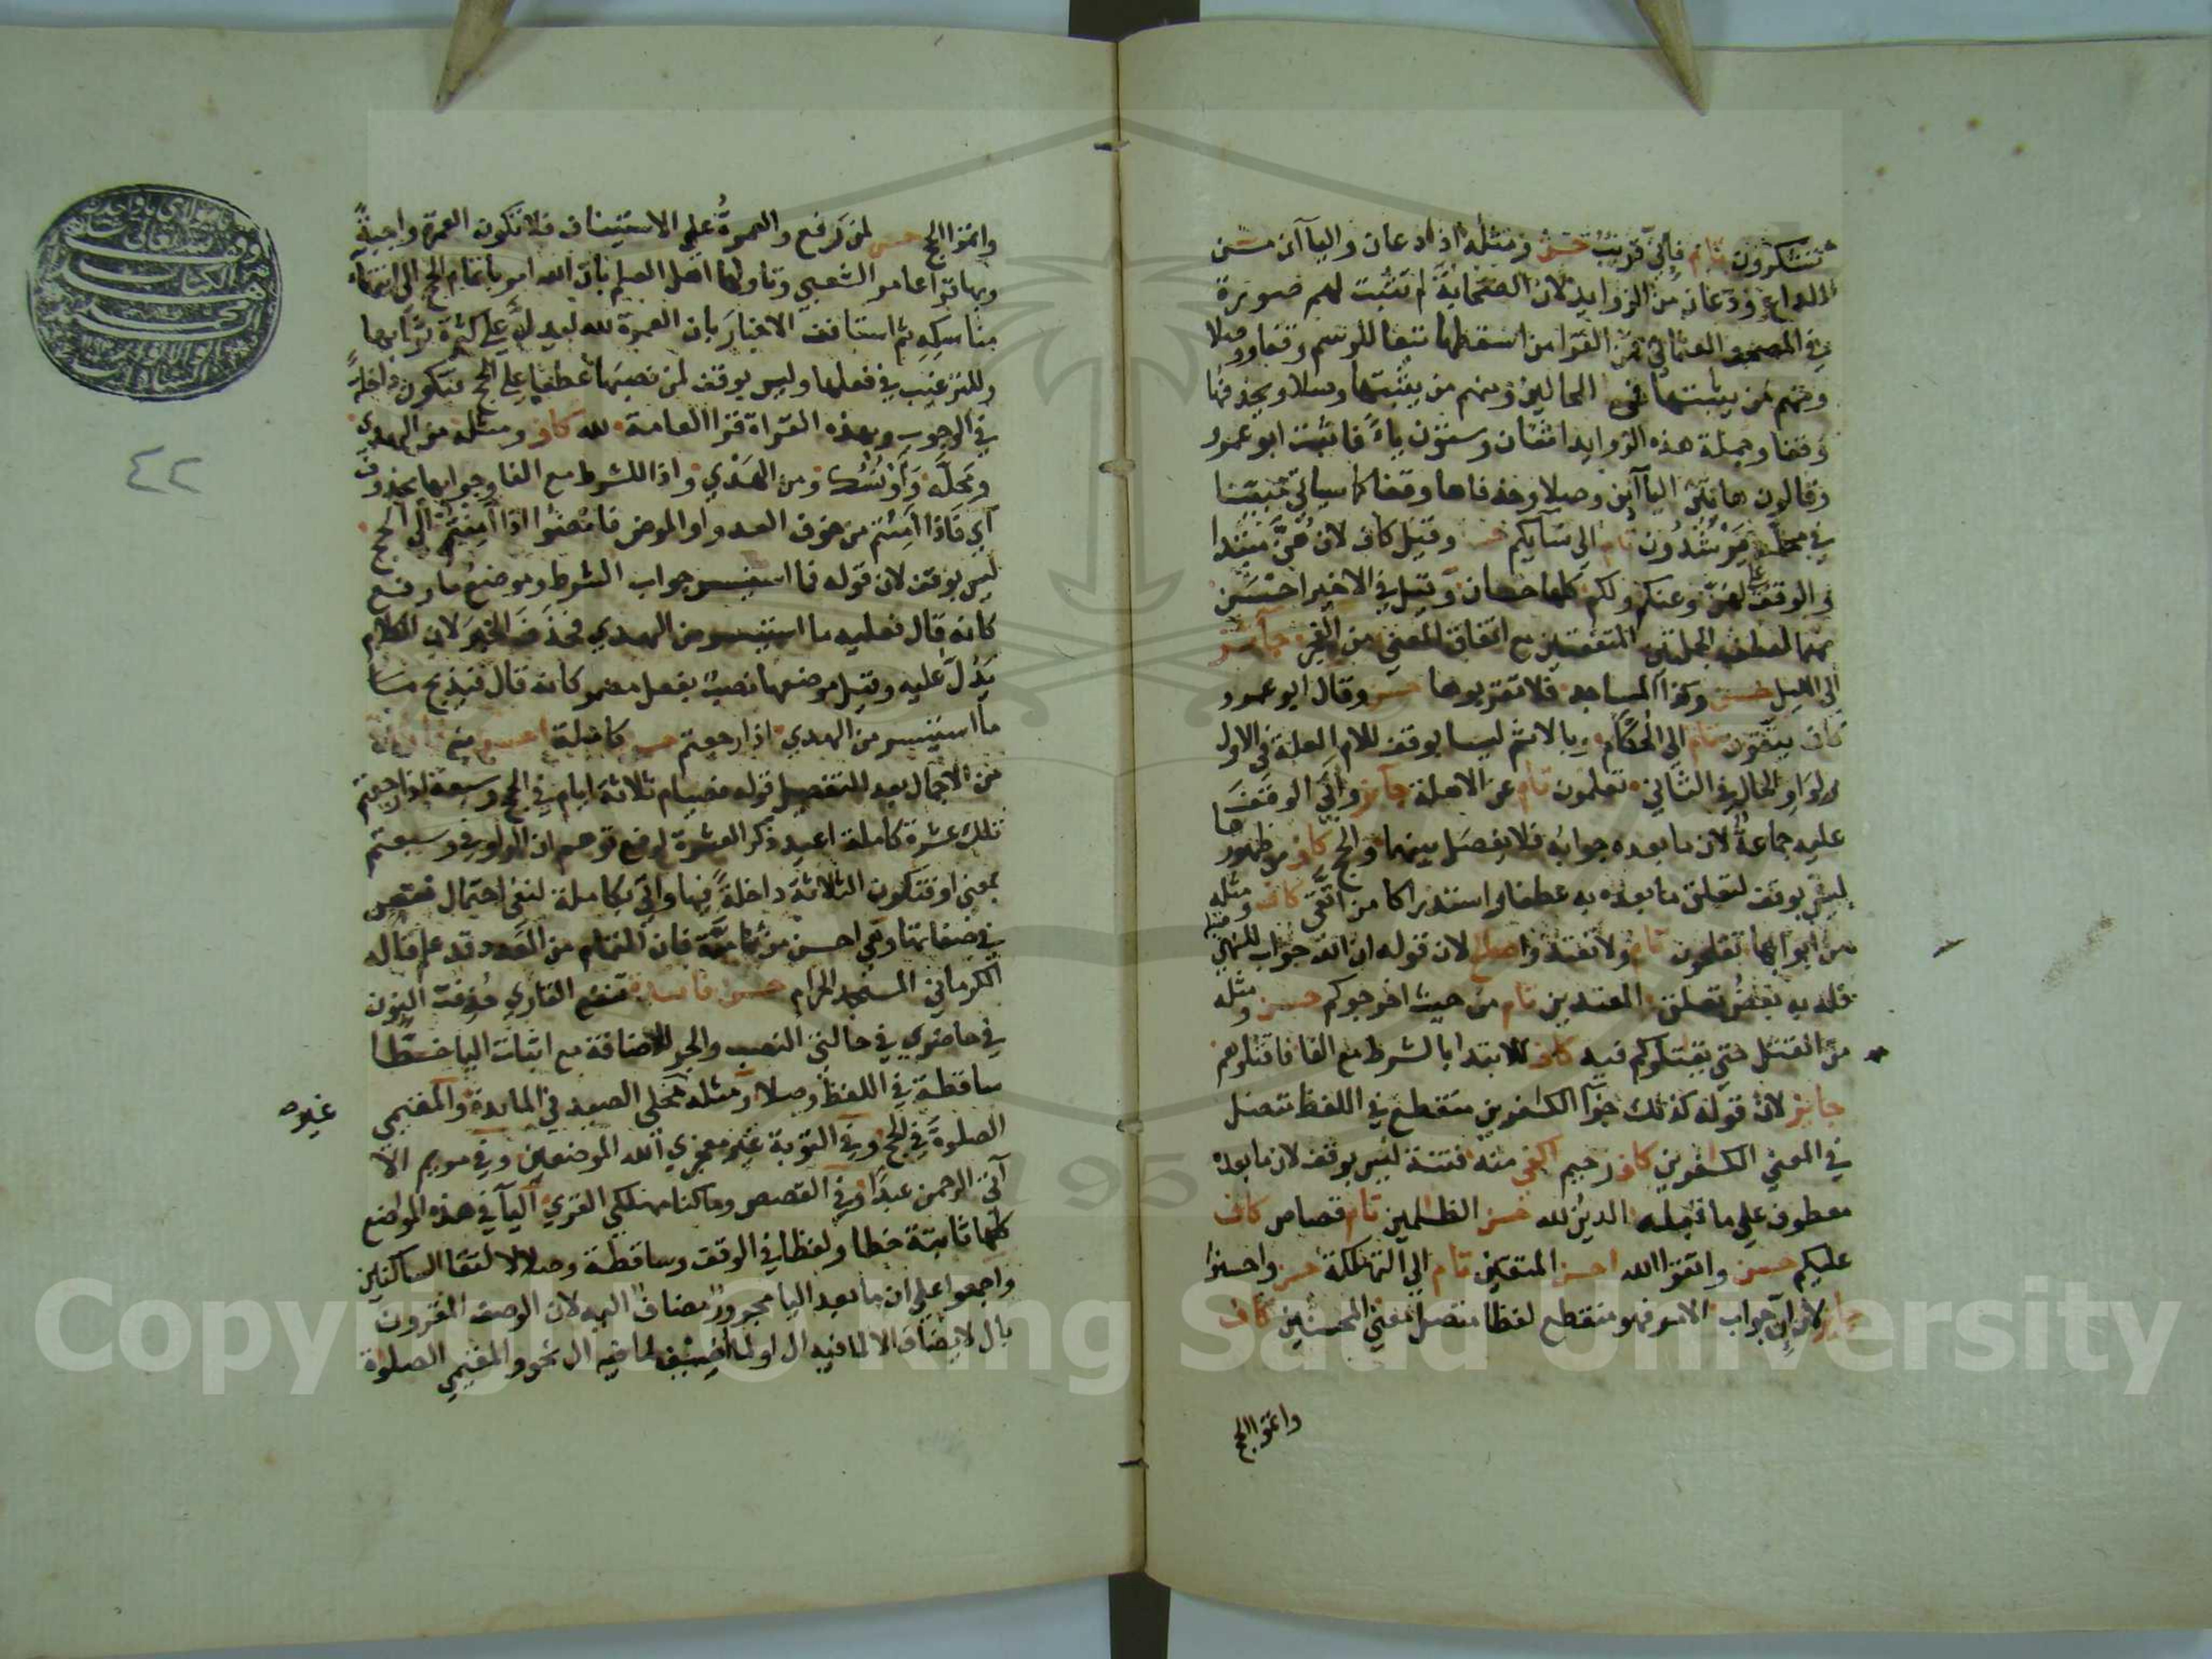 تشكرون تام فاني قريب حسن ومثله اذا دعان واليا آن من
الداع ودعان من الزوايد لان الصحابة لم تثبت لهم صورة
في المصحف العثماني فمن القرا من اسقطها تبعا للرسم وقفا ووصلا
ومنهم من يثبتها في الحالين ومنهم من يثبتها وصلا ويحذفها
وقفا وجملة هذه الزوايد اثنان وستون ياءً فاثبت ابو عمرو
وقالون هاتين اليآ اين وصلا وحذفاها وقفا كما سياتي مبينا
في محله يرشدون تام الي نسآيكم حسن وقيل كاف لان هنّ مبتدا
والوقف علي لهن وعنكم ولكم كلها حسان وقيل في الاخير احسن
منهما لعطف الجملتين المتفقتين مع اتفاق المعني من الفجر جآئز
الي الليل حسن وكذا المساجد فلا تقربوها حسن وقال ابو عمرو
كاف يتقون تام الي الحكام وبالاثم ليسا بوقف للام العلة في الاول
ولواو الحال في الثاني تعلمون تام عن الاهلة جآئز وابي الوقف
عليه جماعة لان ما بعده جوابه فلا يفصل بينهما والحج كاف من ظهورها
ليس بوقف لتعلق ما بعده به عطفا واستدراكا من اتقي كاف ومثله
من ابوابها تفلحون تام ولا تعتدوا صالح لان قوله ان الله جواب للنهي
قبله فله به بعض تعلق المعتدين تام من حيث اخرجوكم حسن ومثله
من القتل حتي يقتلوكم فيه كاف للابتدا بالشرط مع الفا فاقتلوهم
جائز لان قوله كذلك جزآ الكفرين منقطع في اللفظ متصل
في المعني الكفرين كاف رحيم اكفي منه فتنة ليس بوقف لان ما بعده
معطوف علي ما قبله الدين لله حسن الظلمين تام قصاص كاف
عليكم حسن واتقوا الله احسن المتقين تام الي التهلكة حسن واحسنوا
جائز لان ان جواب الامر فهو منقطع لفظا متصل معني المحسنين كاف
واتموا الحج
واتموا الحج حسن لمن رفع والعمرةُ علي الاستيناف فلا تكون العمرة واجبةً
وبها قرا عامر الشعبي وتاولها اهل العلم بان الله امر بتمام الحج الي انتهاء
مناسكه ثم استانف الاخبار بان العمرة لله ليدل علي كثرة ثوابها
وللترغيب في فعلها وليس بوقف لمن نصبها عطفا علي الحج فتكون داخلة
في الوجوب وبهذه القراة قرا العامة لله كاف ومثله من الهدي
ومحله وأو نسك ومن الهدي واذا للشرط مع الفا وجوابها محذوف
اي فاذا امنتم من خوف العدو او المرض فامضوا اذا امنتم الي الحج
ليس بوقف لان قوله فما استيسر جواب الشرط وموضع ما رفع
كانه قال فعليه ما استيسر من الهدي فحذف الخبر لان الكلام
يدل عليه وقيل موضعها نصب بفعل مضمر كانه قال فيذبح
ما استيسر من الهدي اذا رجعتم حسن كاملة احسن منه
من الاجمال بعد التفصيل قوله فصيام ثلاثة ايام في الحج وسبعة اذا رجعتم
تلك عشرة كاملة اعيد ذكر العشرة لرفع توهم ان الواو في وسبعة
بمعني او فتكون الثلاثة داخلة فيها واتي بكاملة لنفي احتمال نقص
في صفاتها وهي احسن من تامة فان التمام من العدد قد علم قاله
الكرماني المسجد الحرام حسن فائدة تنفع القاري حذفت النون
في حاضري في حالتي النصب والجر للاضافة مع اثبات اليا خطا
ساقطة في اللفظ وصلا ومثله محلي الصيد في المائدة والمقيمي
الصلوة في الحج وفي التوبة غير معجزي الله الموضعين وفي مريم الا
غير
آتي الرحمن عبدا وفي القصص وما كنا مهلكي القري اليآ في هذه المواضع
كلها ثابتة خطا ولفظا في الوقف وساقطة وصلا لالتقا الساكنين
واجمعوا علي ان ما بعد اليا مجرور مضاف اليه لان الوصف المقرون
بال لا يضاف الا لما فيه ال او لما اضيف لما فيه ال نحو والمقيمي الصلوة
٤٢
Copyright © King Saud University
195